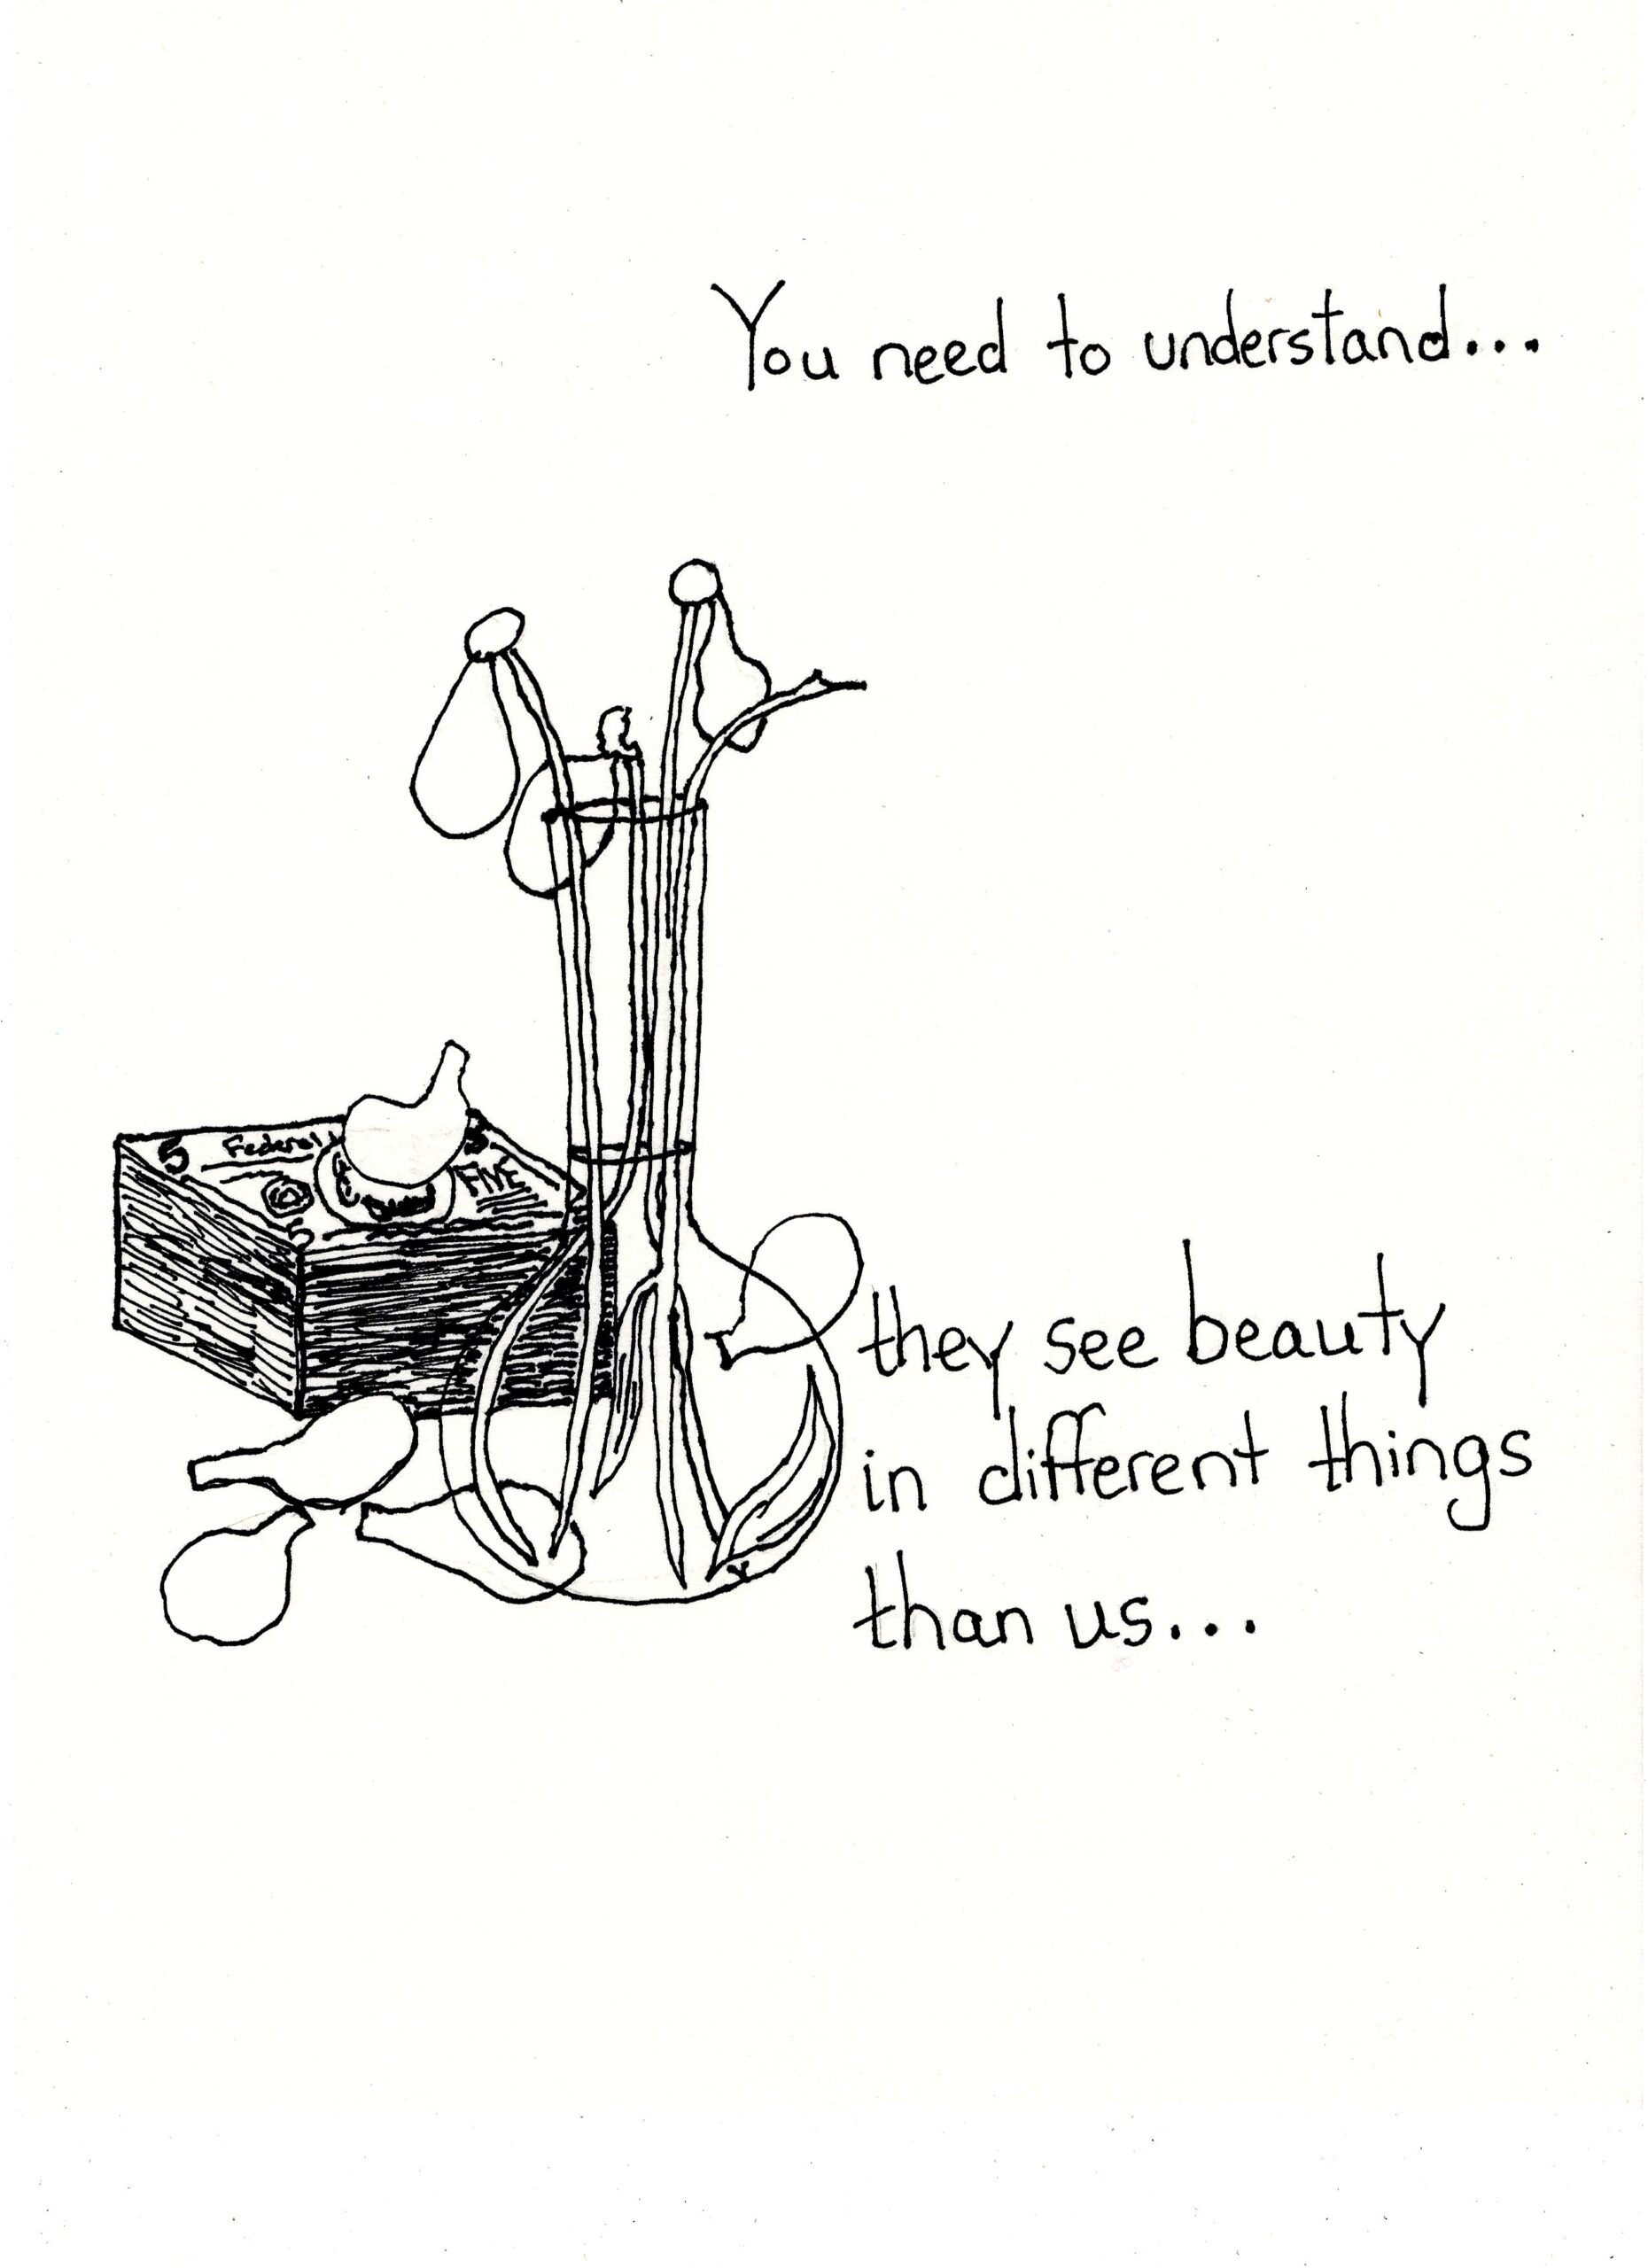 You need to understand...
5 Federal 5
FIVE
5
they see beauty
in different things
than us...